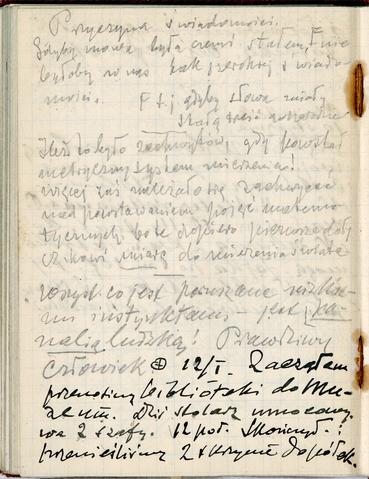 Przyczyna świadomości.
Gdyby mowa była czemś stałem, nie
byłoby w nas tak świado
mości. F t.j. gdyby słowa miały
stałą treść
Ileż to było zachwytów, gdy powstał
metryczny system mierzenia!
więcej zaś należało się zachwycać
nad powstawaniem pojęć matema
tycznych, bo te dopiero pierwsze dały
człkowi miarę do mierzenia świata
Wszystko co jest poruszane nizkie
mi instynktami – jest ka
nalią ludzką! Prawdziwy
człowiek ⊕ 12/I. Zacząłem
przenosiny biblioteki do Mu
zeum. Dziś stolarz umocowy
wa 2 szafy. 12 poł. Skończył i
przenieśliśmy 2 skrzynie do półek.